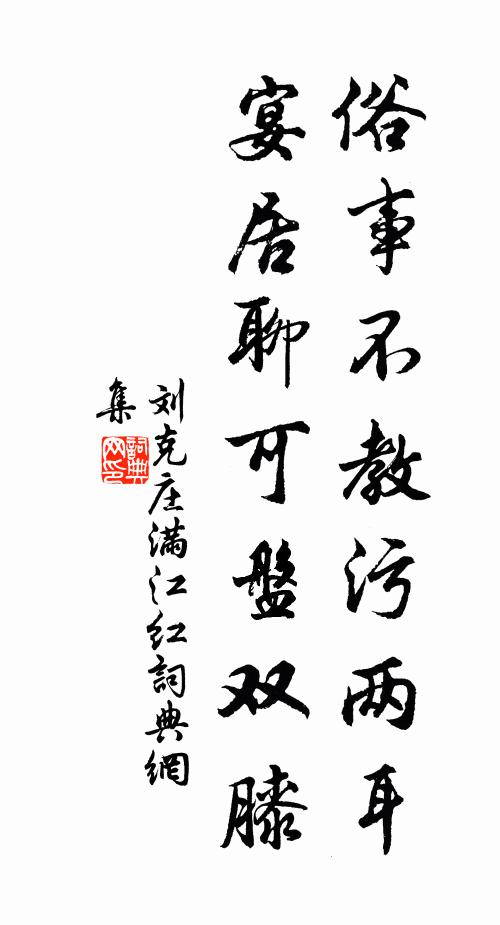 俗事不教污两耳
宴居聊可盤双膝
刘克庄满江红詞典網
集
詞典网印